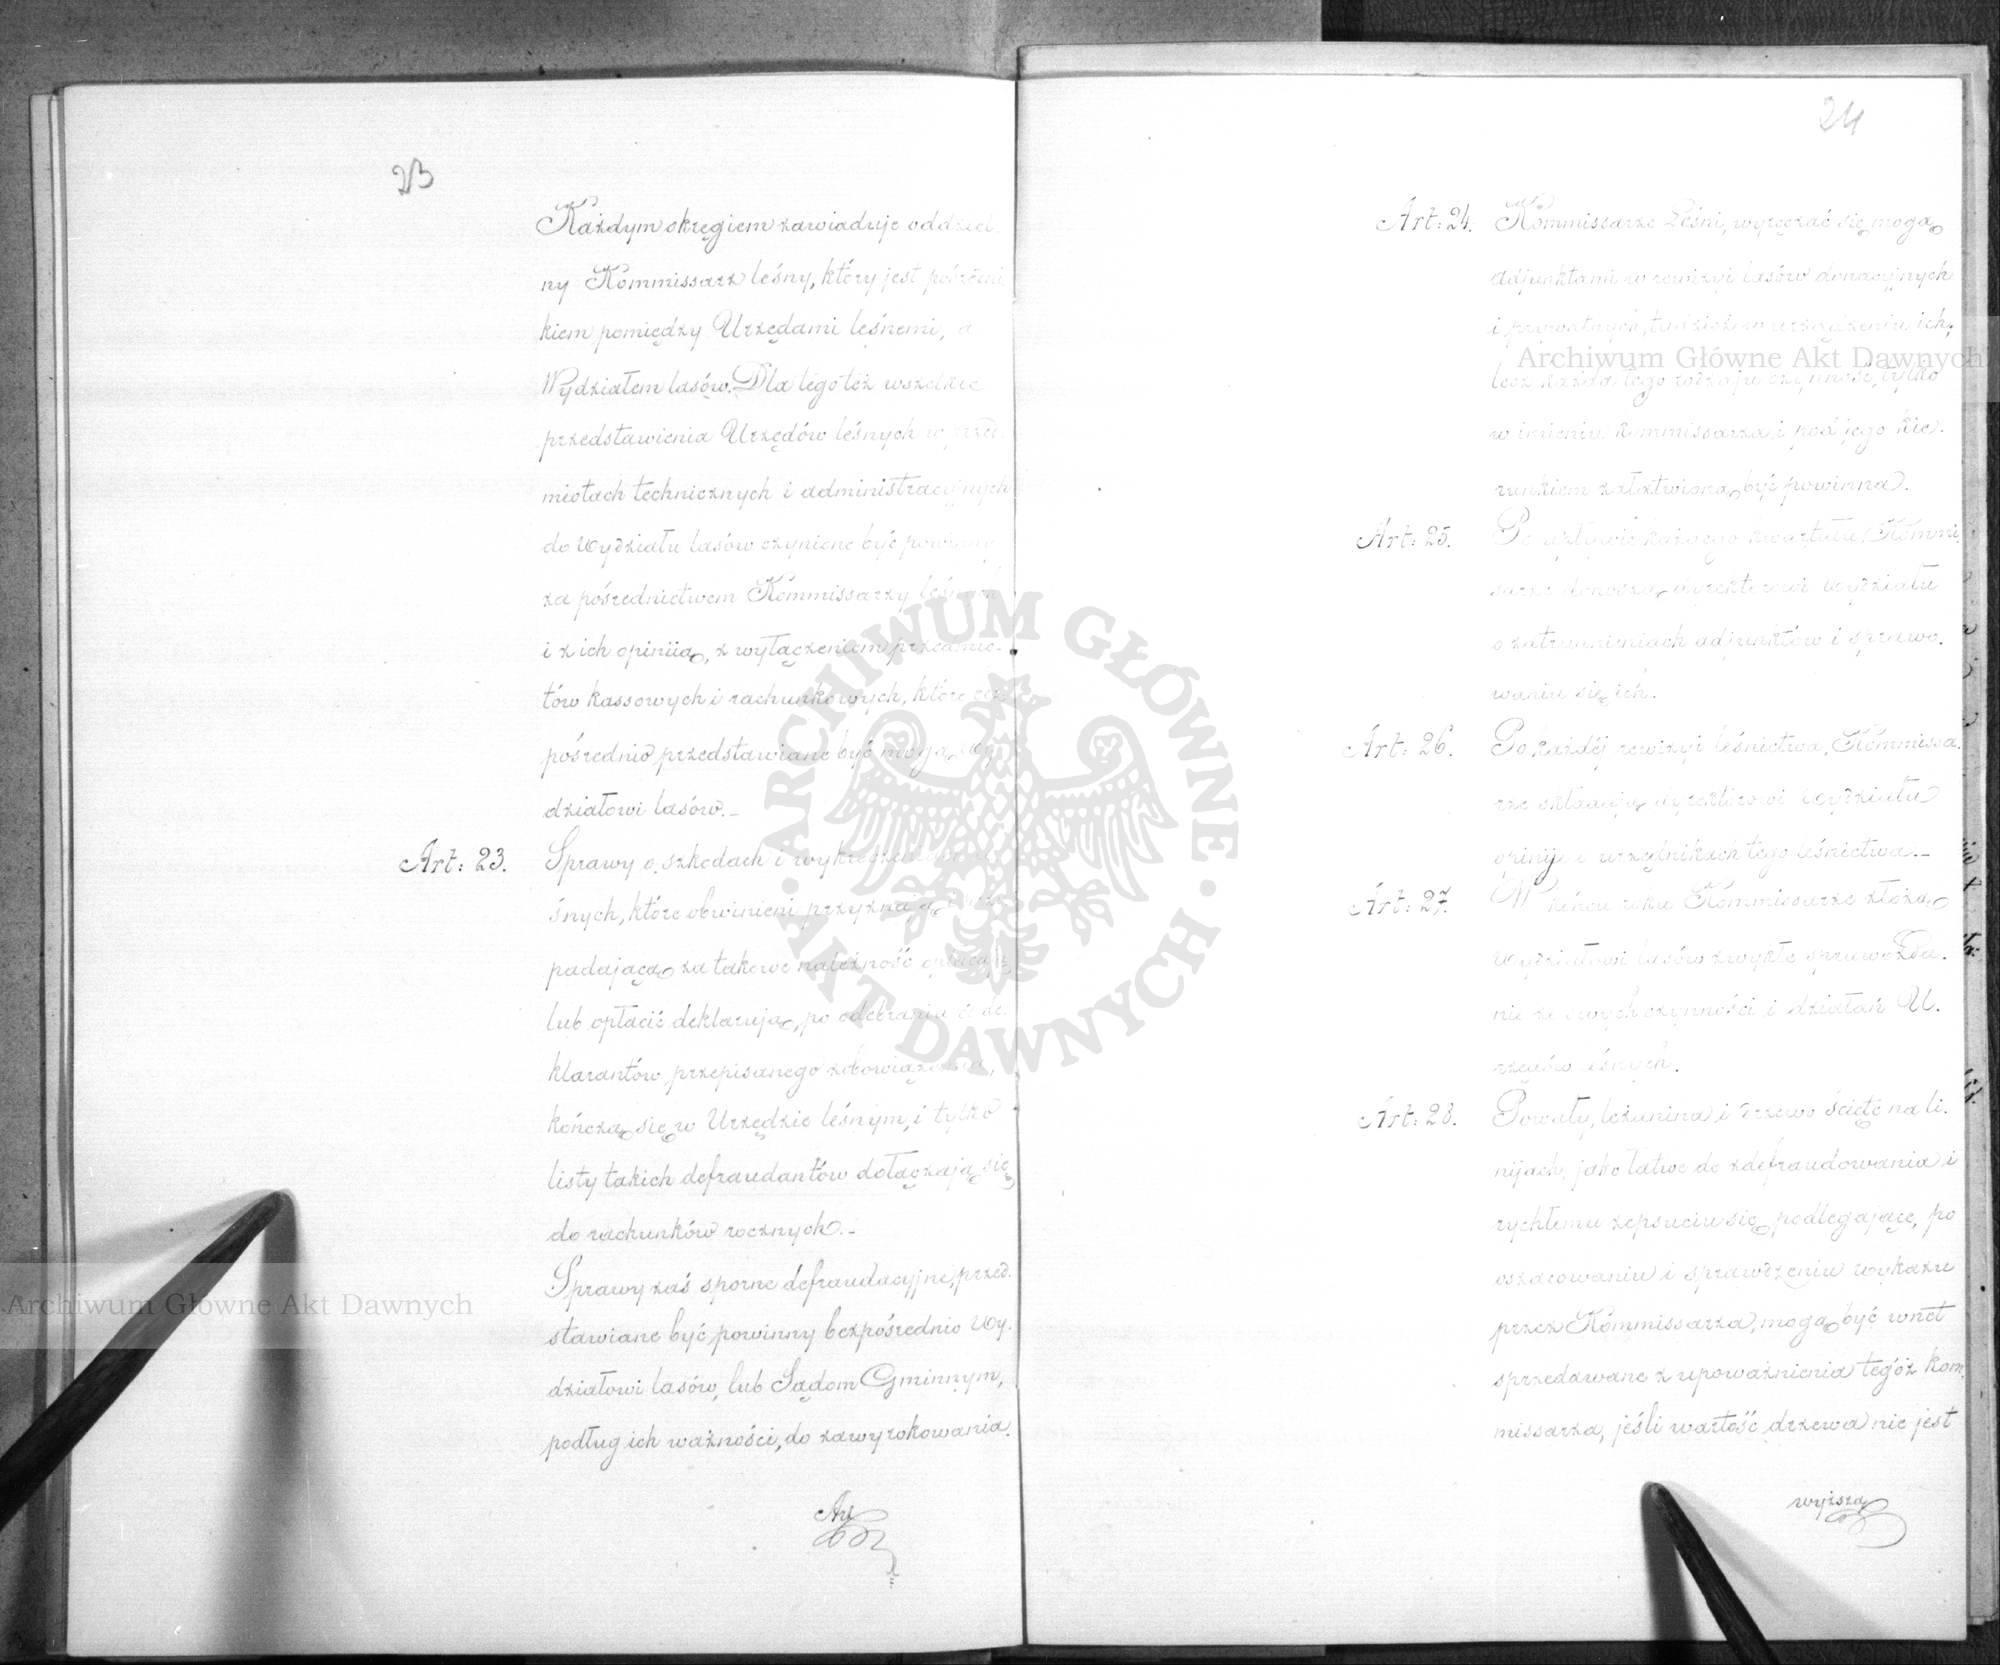 23
Każdym okręgiem zawiaduje oddziel
ny Kommissarz leśny, który jest pośredni
kiem pomiędzy Urzędami leśnemi, a
Wydziałem lasów. Dla tego też wszelkie
przedstawienia Urzędów leśnych w przed-
miotach technicznych i administracyjnych
do Wydziału lasów czynione być powinny
za pośrednictwem Kommissarzy leśnych
i z ich opiniią, z wyłączeniem przedmio-
tów kassowych i rachunkowych, które bez
pośrednio przedstawiane być mogą Wy
działowi lasów.-
Art: 23. Sprawy o szkodach i wykroczeniach
śnych, które obwinieni przyznają i
padającą za takowe należność opłacają
lub opłacić deklarują, po odebraniu od de-
klarantów przepisanego zobowiązania,
kończą się w Urzędzie leśnym, i tylko
listy takich defraudantów dołączają się
do rachunków rocznych.-
Sprawy zaś sporne defraudacyjne, przed-
stawiane być powinny bezpośrednio Wy-
działowi lasów, lub Sądom Gminnym,
podług ich ważności, do zawyrokowania.
Art
24
Art: 24. Kommissarze Leśni, wyręczać się mogą
adjunktami w rewizyi lasów donacyjnych
i prywatnych, tudzież w urządzeniu ich,
lecz każda tego rodzaju czynność, tylko
w imieniu Kommissarza i pod jego kie-
runkiem załatwioną być powinna.
Art: 25. Po upływie każdego kwartału, Kommi
sarze donoszą dyrektorowi Wydziału
o zatrudnieniach adjunktów i sprawo-
waniu się ich.
Art: 26. Po każdéj rewizyi leśnictwa, Kommissa-
rze składają dyrektorowi Wydziału
opinije o urzędnikach tego leśnictwa.-
Art: 27. W końcu roku Kommissarze złożą
Wydziałowi lasów zwykłe sprawozda-
nie ze swych czynności i działań U-
rzędów leśnych.
Art: 28. Powały, leżanina i drzewo ścięte na li-
nijach, jako łatwe do zdefraudowania i
rychłemu zepsuciu się podlegające, po
oszacowaniu i sprawdzeniu wykazu
przez Kommissarza, mogą być wnet
sprzedawane z upoważnienia tegóż Kom-
missarza, jeśli wartość drzewa nie jest
wyższą
Archiwum Główne Akt Dawnych
Archiwum Główne Akt Dawnych
ARCHIWUM GŁÓWNE AKT DAWNYCH